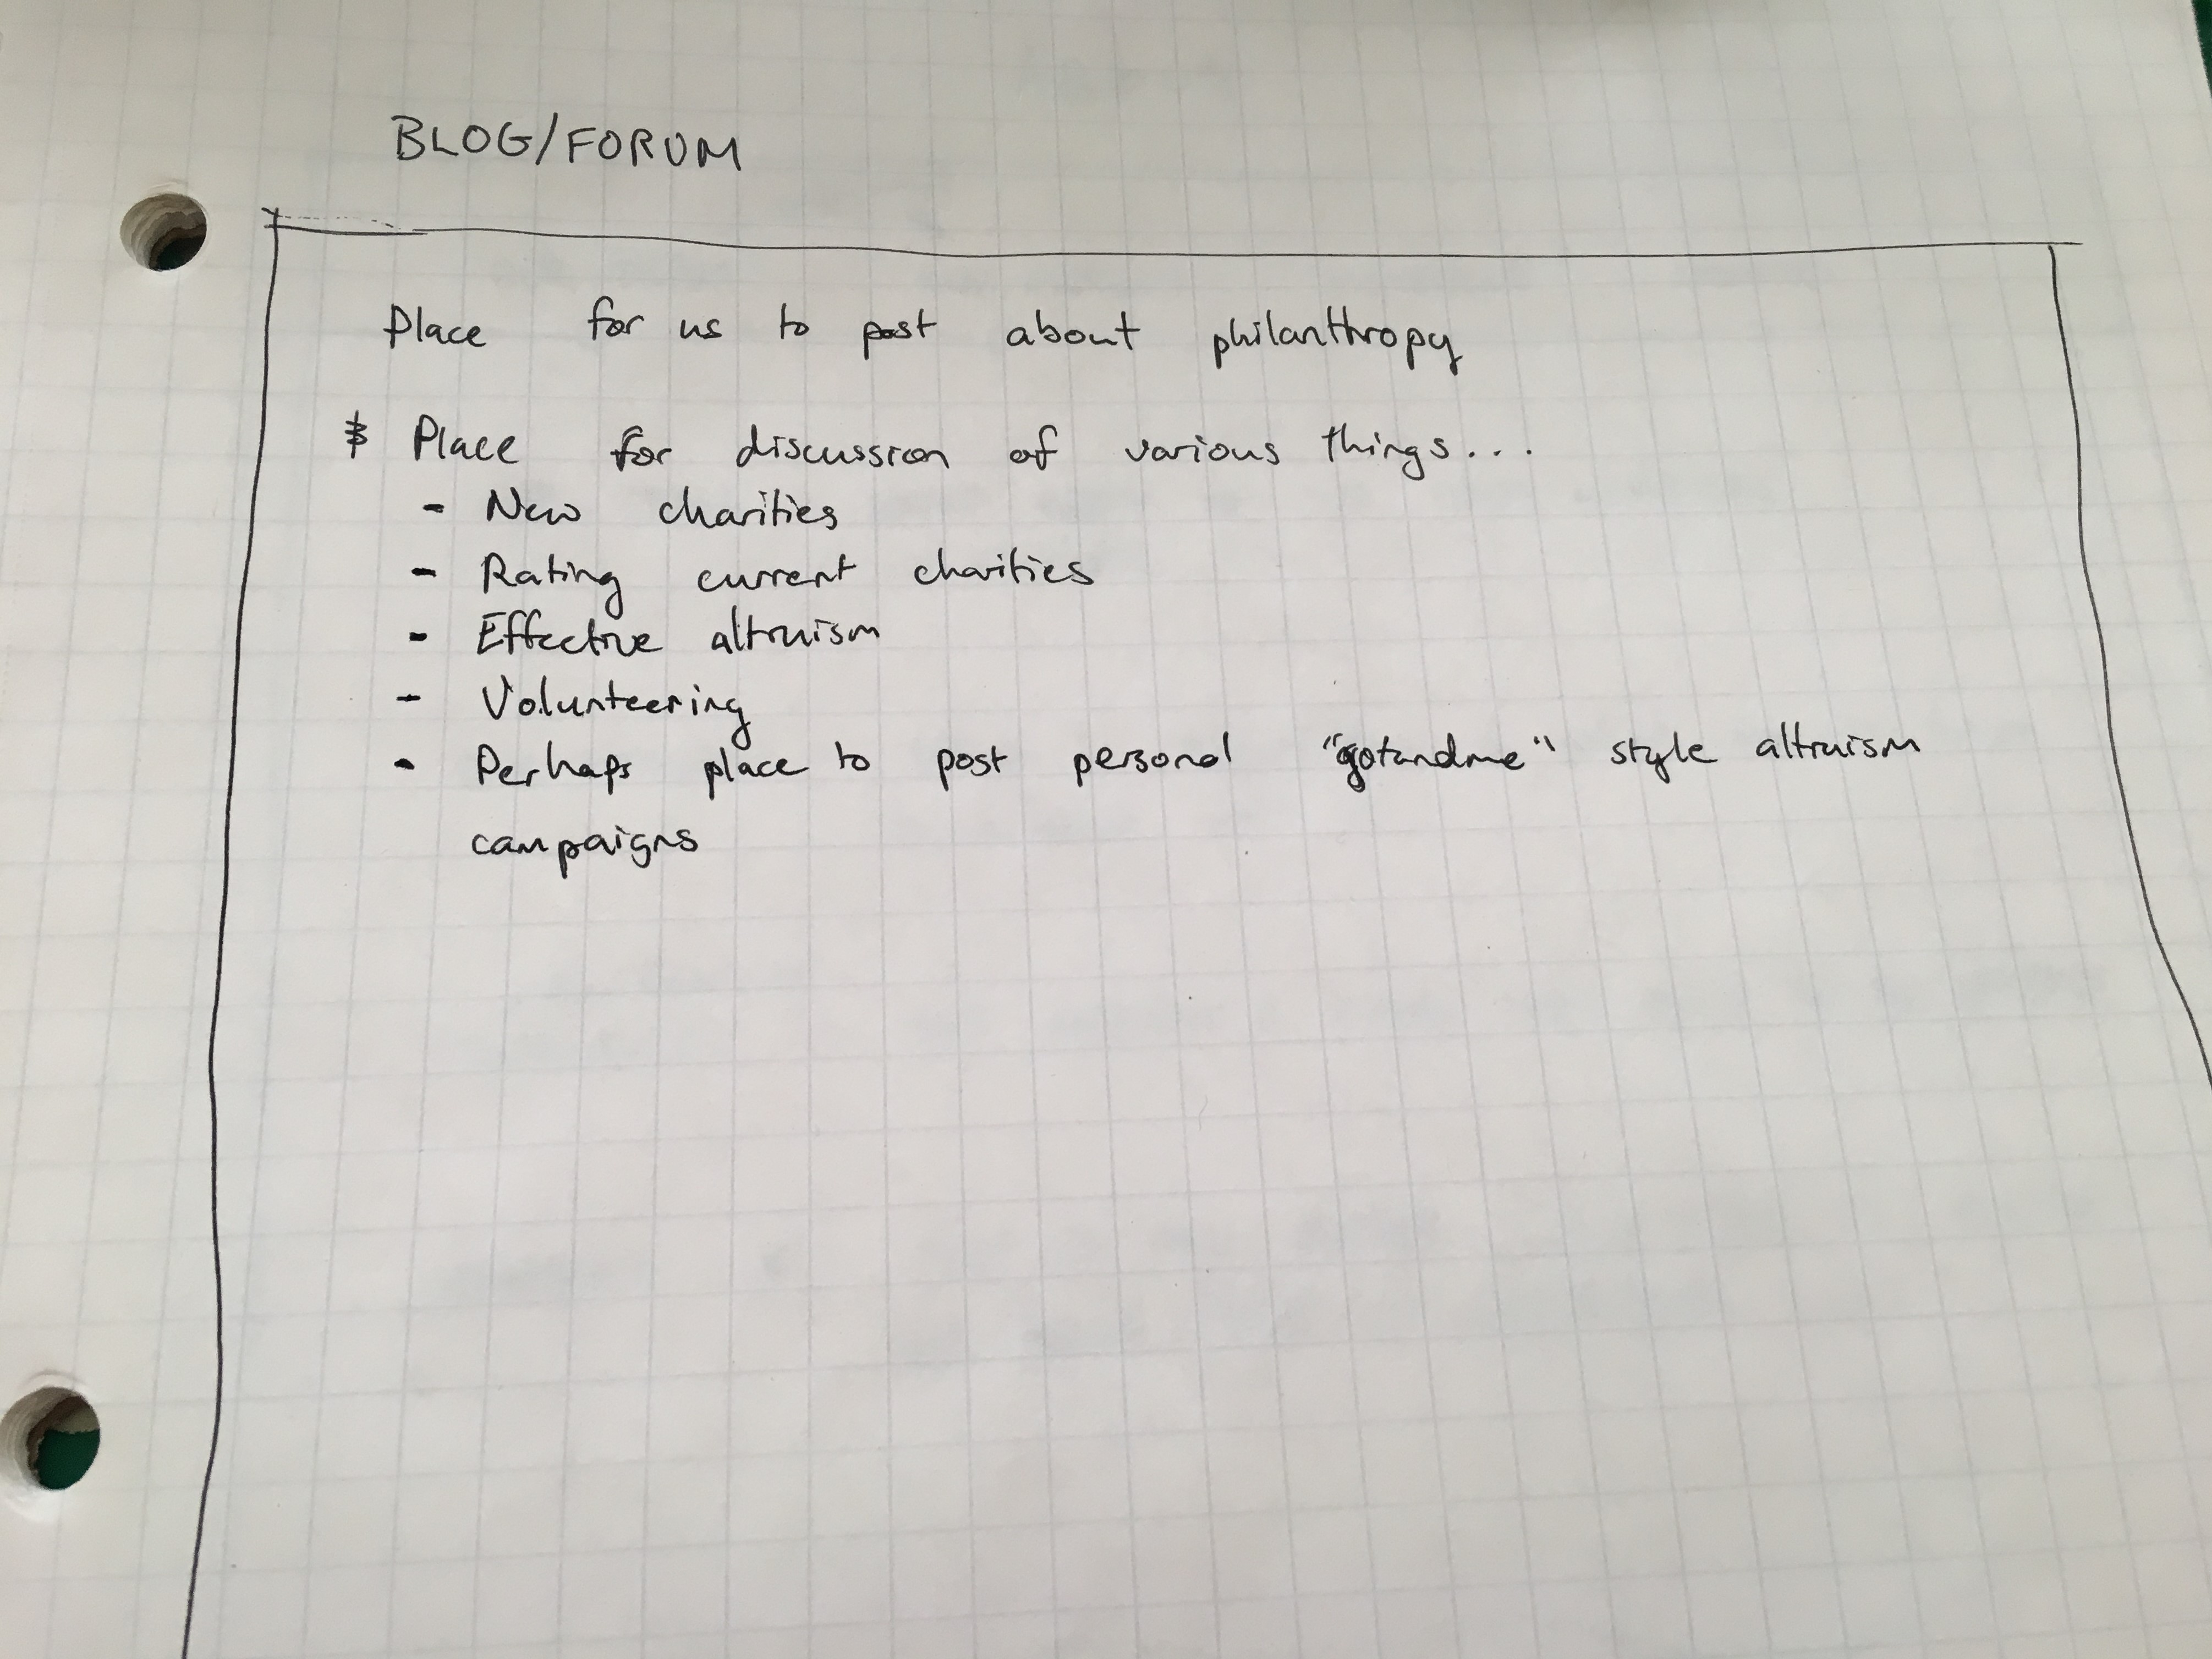 BLOG/FORUM
Place for us to post about philanthropy
Place for discussion of various things...
- New charities
- Rating current charities
- Effective altruism
- Volunteering
- Perhaps place to post personal "gofandme" style altruism
campaigns